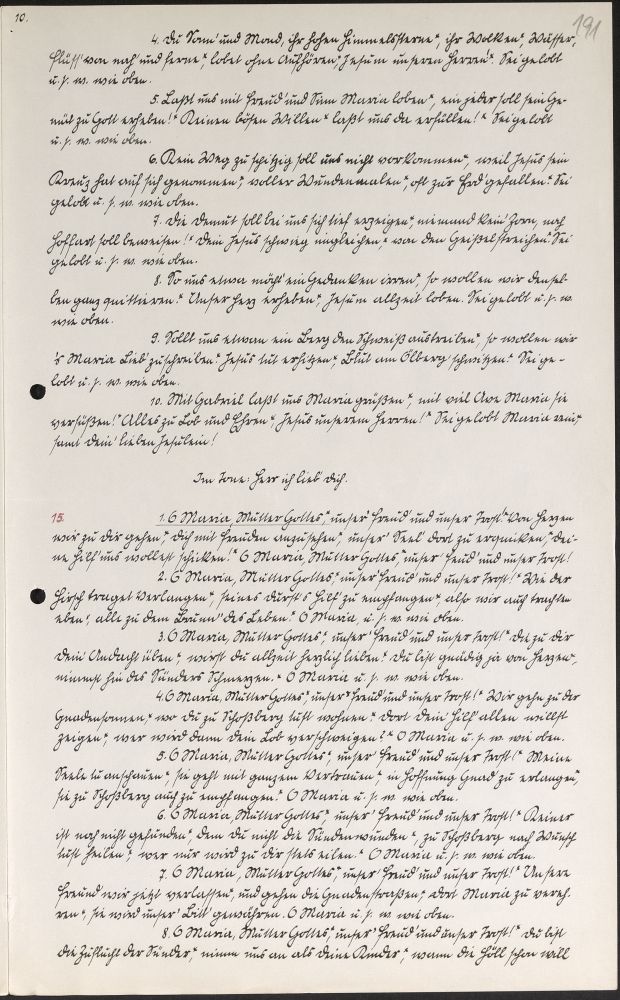 10.
191
4. Du Sonn' und Mond, ihr hohen Himmelssterne*, ihr Wolken*, Wasser,
Flüss' von nah' und ferne*, lobet ohne Aufhören*, Jesum unseren Herren!* Sei gelobt
u. s. w. wie oben.
5. Laßt uns mit Freud' und Sinn Maria loben*, ein jeder soll sein Ge-
müt zu Gott erheben!* Keinen bösen Willen* laßt uns da erfüllen!* Sei gelobt
u. s. w. wie oben.
6. Kein Weg zu spitzig soll uns nicht vorkommen*, weil Jesus sein
Kreuz hat auf sich genommen*, voller Wundenmalen*, oft zur Erd' gefallen.* Sei
gelobt u. s. w. wie oben.
7. Die Demut soll bei uns sich tief erzeigen*, niemand kein' Zorn, noch
Hoffart soll beweisen!* Dein Jesus schwieg ungleichen*, von den Geißelstreichen.* Sei
gelobt u. s. w. wie oben.
8. So uns etwa möcht' ein Gedanken irren*, so wollen wir densel-
ben ganz quittieren.* Unser Herz erheben*, Jesum allzeit loben. Sei gelobt u. s. w.
wie oben.
9. Sollt uns etwan ein Berg den Schweiß austreiben*, so wollen wir
's Maria Lieb' zuschreiben.* Jesus tut erhitzen*, Blut am Ölberg schwitzen.* Sei ge-
lobt u. s. w. wie oben.
10. Mit Gabriel laßt uns Maria grüßen*, mit viel Ave Maria sie
versüßen!* Alles zu Lob und Ehren*, Jesus unserem Herren!* Sei gelobt Maria rein*
samt dein' lieben Jesulein!
Im Tone: Herr ich lieb' dich.
15. 1. O Maria, Mutter Gottes*, unser' Freud' und unser Trost!* Von Herzen
wir zu dir gehen*, dich mit Freuden anzusehen*, unser' Seel' dort zu erquicken*, dei-
ne Hilf' uns wollest schicken!* O Maria, Mutter Gottes*, unser' Freud' und unser Trost!
2. O Maria, Mutter Gottes*, unser' Freud' und unser Trost!* Wie der
Hirsch traget Verlangen*, seines Dursts Hilf' zu empfangen*, also wir auch trachten
eben*, alle zu dem Brunn' des Leben.* O Maria, u. s. w. wie oben.
3. O Maria, Mutter Gottes*, unser' Freud' und unser Trost!* Die zu dir
dein' Andacht üben*, wirst du allzeit herzlich lieben.* Du bist gnädig ja von Herzen*,
nimmst hin des Sünders Schmerzen.* O Maria u. s. w. wie oben.
4. O Maria, Mutter Gottes*, unser' Freud' und unser Trost!* Wir gehn zu der
Gnadensonnen*, wo du zu Schoßberg tust wohnen*, dort dein' Hilf' allen willst
zeigen*, wer wird dann dein Lob verschweigen?* O Maria u. s. w. wie oben.
5. O Maria, Mutter Gottes*, unser' Freud' und unser Trost!* Meine
Seele tu anschauen*, sie geht mit ganzem Vertrauen*, in Hoffnung Gnad' zu erlangen*,
sie zu Schoßberg auch zu empfangen.* O Maria u. s. w. wie oben.
6. O Maria, Mutter Gottes*, unser' Freud' und unser Trost!* Keiner
ist noch nicht gefunden*, dem du nicht die Sündenwunden*, zu Schoßberg nach Wunsch
tust heilen*, wer nur wird zu dir stets eilen.* O Maria u. s. w. wie oben.
7. O Maria, Mutter Gottes*, unser' Freud' und unser Trost!* Unsere
Freund' wir jetzt verlassen*, und gehen die Gnadenstraßen*, dort Maria zu vereh-
ren*, sie wird unser' Bitt' gewähren. O Maria u. s. w. wie oben.
8. O Maria, Mutter Gottes*, unser' Freud' und unser Trost!* Du bist
die Zuflucht der Sünder*, nimm uns an als deine Kinder*, wann die Höll' schon will